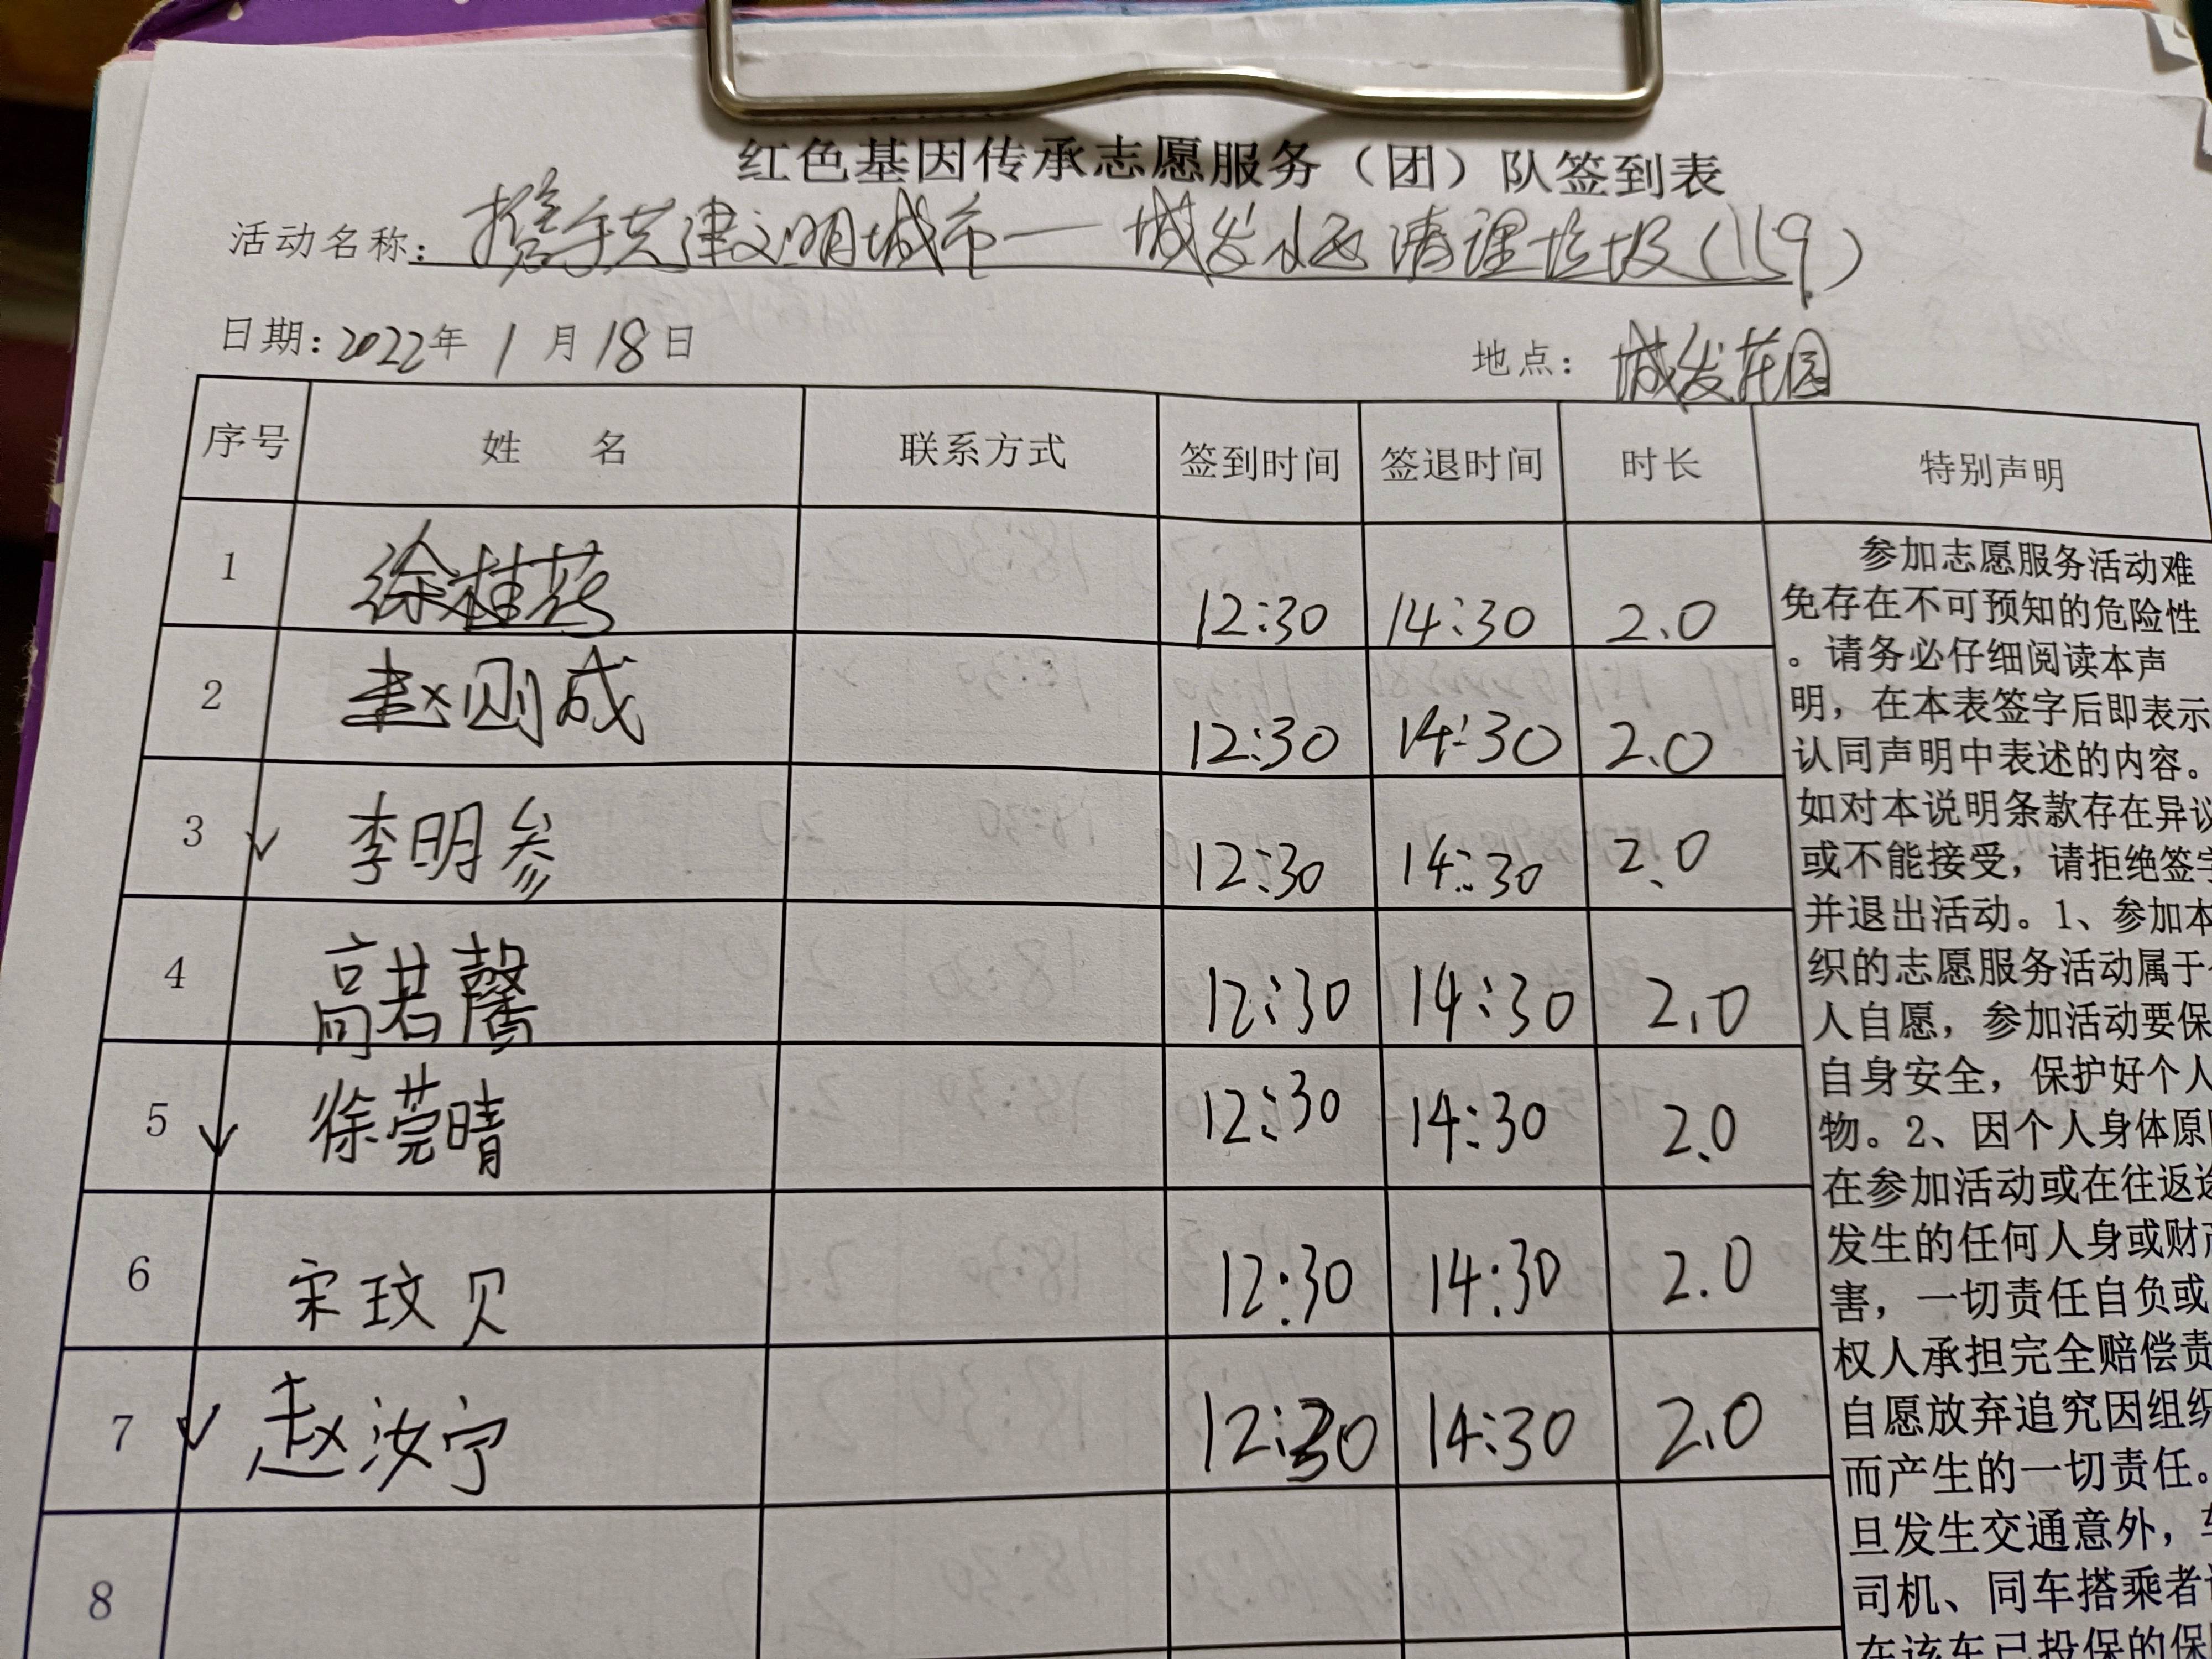 红色基因传承志愿服务（团）队签到表
活动名称：携手共建文明城市一城发小区清理垃圾（159）
日期：2022年 1 月 18 日 地点：城发花园
序号 姓 名 联系方式 签到时间 签退时间 时长 特别声明
1 徐桂芬 12:30 14:30 2.0
2 赵刚成 12:30 14:30 2.0
3 李明参 12:30 14:30 2.0
4 高若馨 12:30 14:30 2.0
5 徐莞晴 12:30 14:30 2.0
6 宋玟贝 12:30 14:30 2.0
7 赵汝宁 12:30 14:30 2.0
8
参加志愿服务活动难
免存在不可预知的危险性
。请务必仔细阅读本声
明，在本表签字后即表示
认同声明中表述的内容。
如对本说明条款存在异议
或不能接受，请拒绝签字
并退出活动。1、参加本
织的志愿服务活动属于
人自愿，参加活动要保
自身安全，保护好个人
物。2、因个人身体原
在参加活动或在往返途
发生的任何人身或财产
害，一切责任自负或
权人承担完全赔偿责
自愿放弃追究因组织
而产生的一切责任。
旦发生交通意外，
司机、同车搭乘者
在该车已投保的保